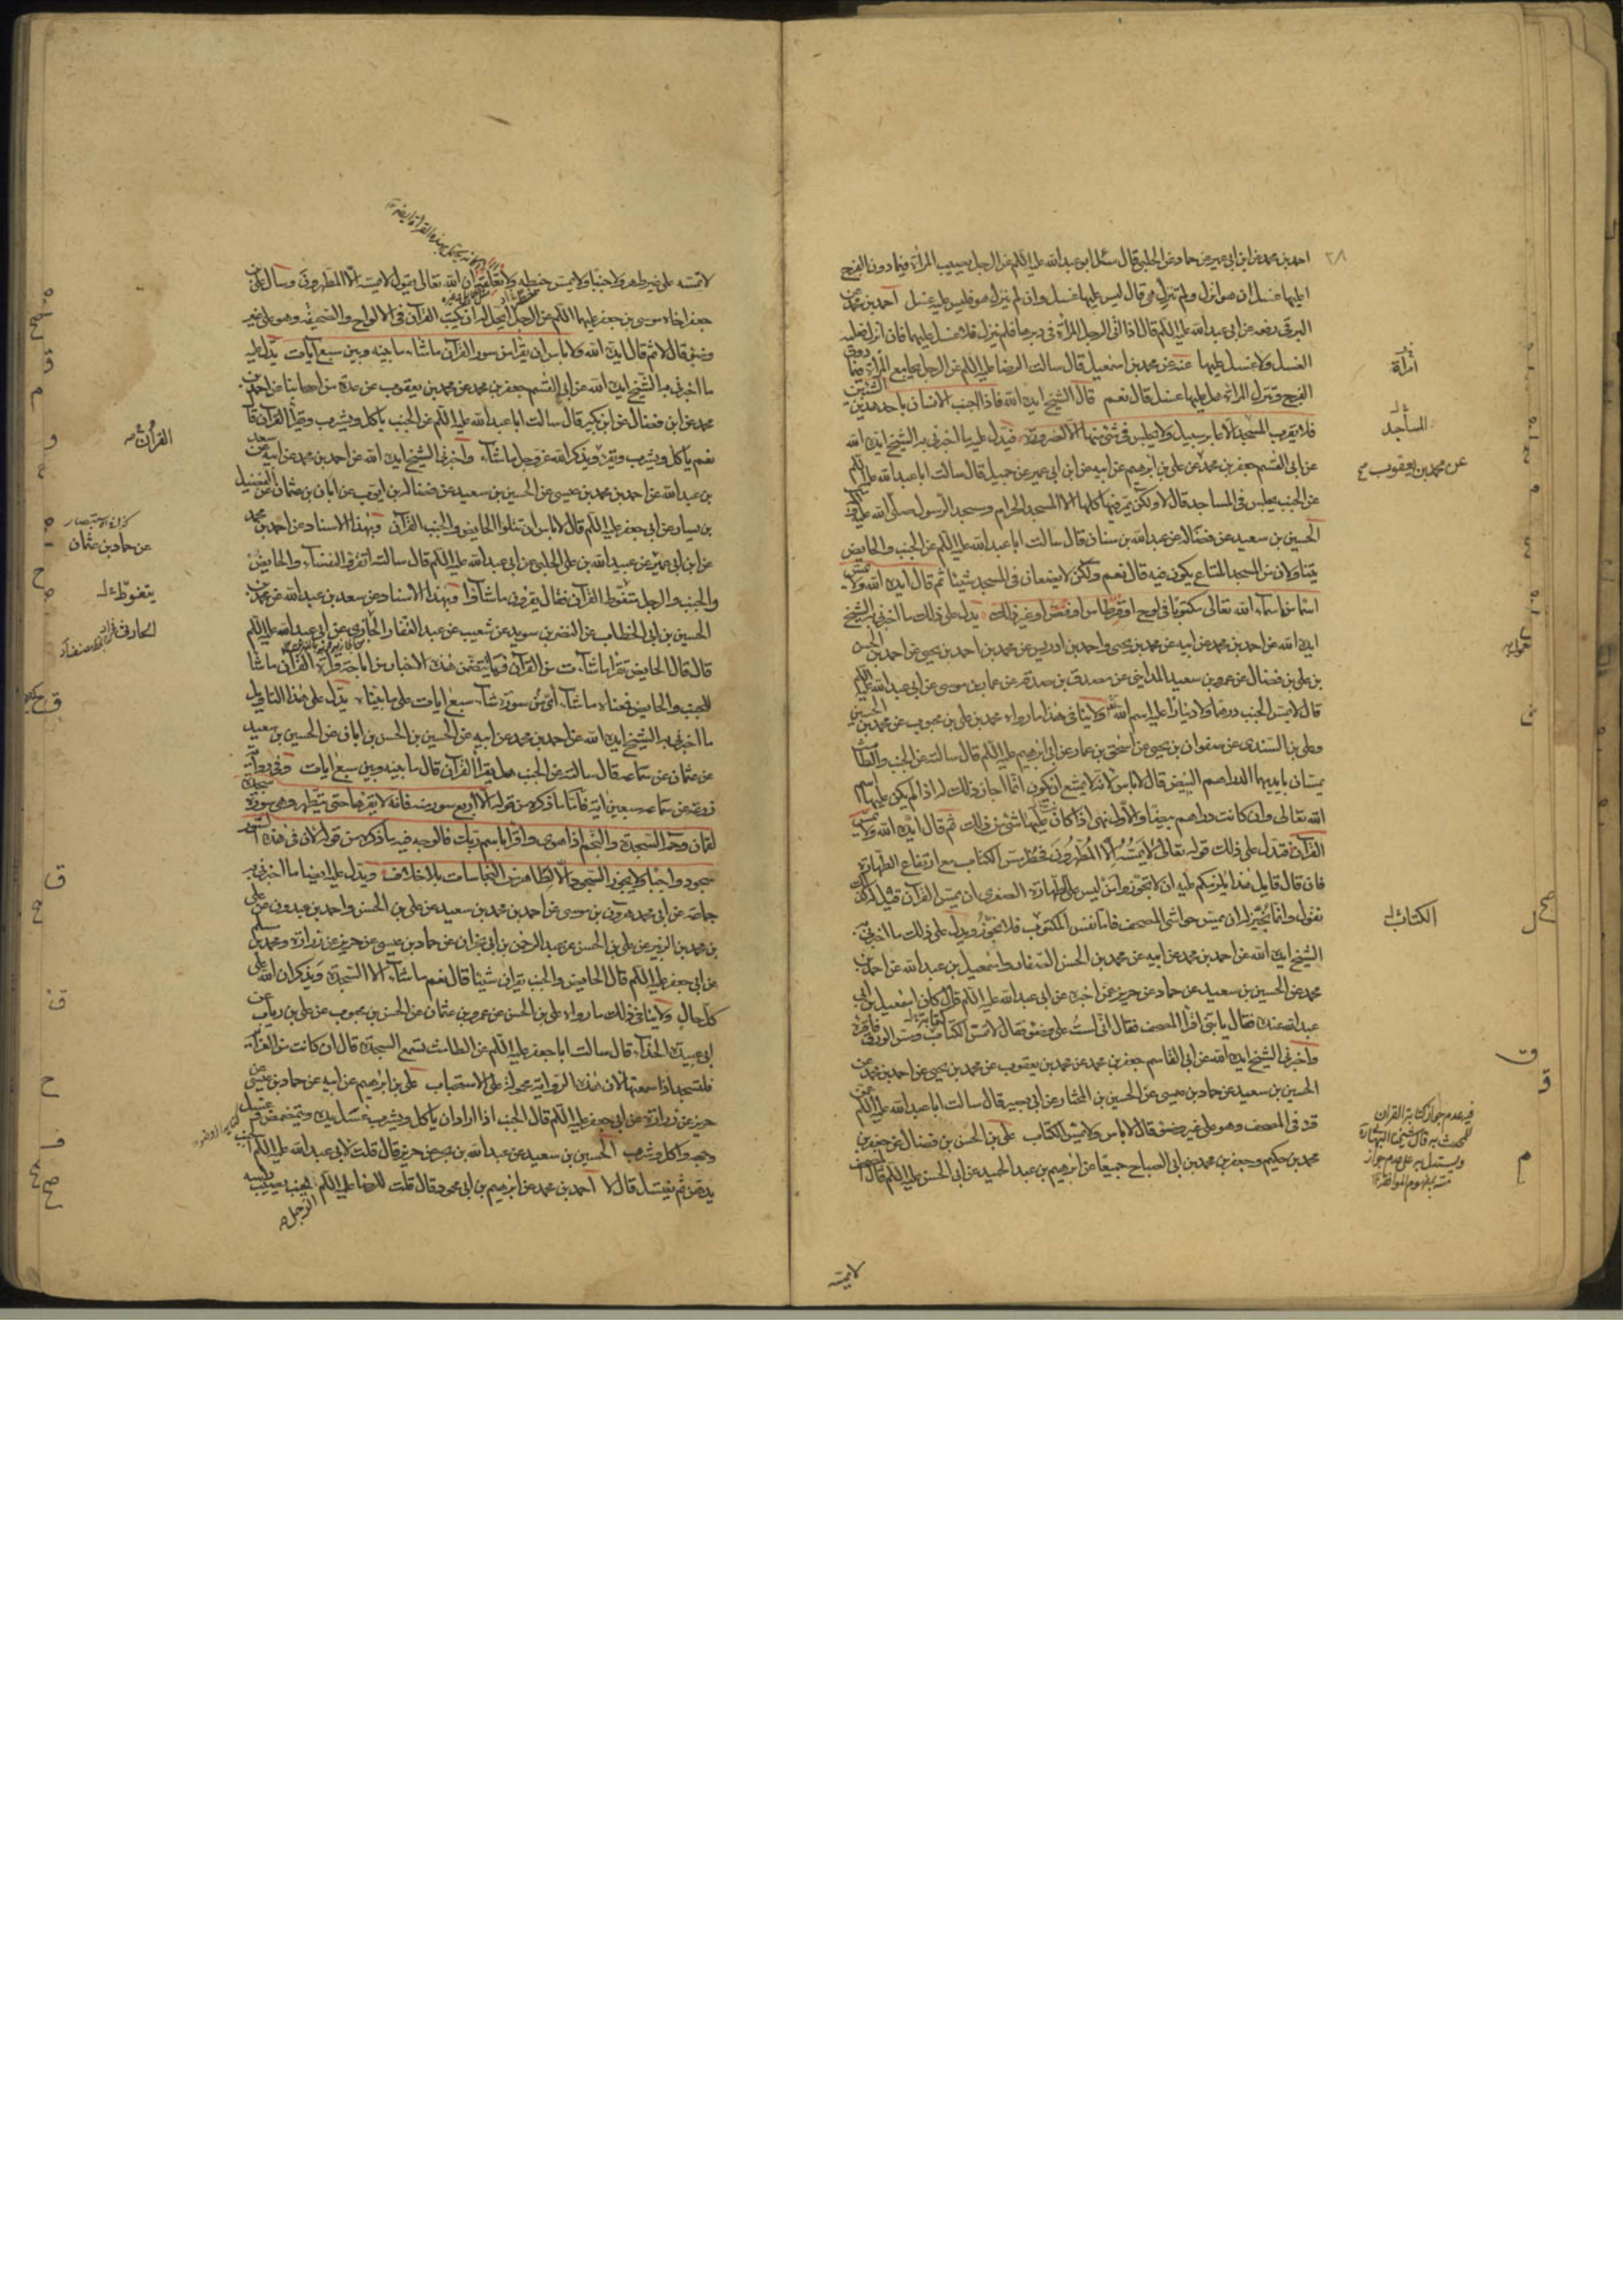 احمد بن محمد عن ابن ابي عمير عن حماد عن الحلبي قال سئل ابو عبد الله عليه السلام عن الرجل يصيب المرأة فيما دون الفرج
اعليها غسل ان هو انزل ولم تنزل هي قال ليس عليها غسل وان لم ينزل هو فليس عليه غسل احمد بن محمد عن
البرقي رفعه عن ابي عبد الله عليه السلام قال اذا اتى الرجل المرأة في دبرها فلم ينزل فلا غسل عليهما فان انزل فعليه
الغسل ولا غسل عليها عنه عن محمد بن اسمعيل قال سالت الرضا عليه السلام عن الرجل يجامع المرأة فيما دون
الفرج وتنزل المرأة هل عليها غسل قال نعم قال الشيخ ايده الله فاذا اجنب الانسان باحد هذين الشيئين
فلا يقرب المسجد الا عابر سبيل ولا يجلس في شئ منها الا لضرورة فيدل عليه ما اخبرني به الشيخ ايده الله
عن ابي القسم جعفر بن محمد عن علي بن ابرهيم عن ابيه عن ابن ابي عمير عن جميل قال سالت ابا عبد الله عليه السلام
عن الجنب يجلس في المساجد قال لا ولكن يمر فيها كلها الا المسجد الحرام ومسجد الرسول صلى الله عليه وآله
الحسين بن سعيد عن فضالة عن عبد الله بن سنان قال سالت ابا عبد الله عليه السلام عن الجنب والحايض
يتناولان من المسجد المتاع يكون فيه قال نعم ولكن لا يضعان في المسجد شيئا ثم قال ايده الله ولا يمس
اسما من اسماء الله تعالى مكتوبا في لوح او قرطاس او فص او غير ذلك يدل على ذلك ما اخبرني به الشيخ
ايده الله عن احمد بن محمد عن ابيه عن محمد بن يحيى واحمد بن ادريس عن محمد بن احمد بن يحيى عن احمد بن الحسن
بن علي بن فضال عن عمرو بن سعيد المدايني عن مصدق بن صدقة عن عمار بن موسى عن ابي عبد الله عليه السلام
قال لا يمس الجنب درهما ولا دينارا عليه اسم الله ولا ينافي هذا ما رواه محمد بن علي بن محبوب عن محمد بن الحسين
وعلي بن السندي عن صفوان بن يحيى عن اسحق بن عمار عن ابي ابرهيم عليه السلام قال سالته عن الجنب والطامث
يمسان بايديهما الدراهم البيض قال لا باس لانه لا يمتنع ان يكون انما اجاز ذلك له اذا لم يكن عليها اسم
الله تعالى وان كانت دراهم بيضا والاول نهى اذا كان عليها شئ من ذلك ثم قال ايده الله ولا يمس
القرآن فيدل على ذلك قوله تعالى لا يمسه الا المطهرون فحظر مس الكتاب مع ارتفاع الطهارة
فان قال قايل هذا يلزمكم عليه ان لا تجوزوا من ليس على الطهارة الصغرى ان يمس القرآن قيل له كذلك
نقول وانما نجيز له ان يمس حواشي المصحف فاما نفس المكتوب فلا يجوز ويدل على ذلك ما اخبرني
الشيخ ايده الله عن احمد بن محمد عن ابيه عن محمد بن الحسن الصفار واسمعيل بن عبد الله عن احمد بن
محمد عن الحسين بن سعيد عن حماد عن حريز عمن اخبره عن ابي عبد الله عليه السلام قال كان اسمعيل بن ابي
عبد الله عنده فقال يا بني اقرأ المصحف فقال اني لست على وضوء فقال لا تمس الكتاب ومس الورق فاقرأه
واخبرني الشيخ ايده الله عن ابي القاسم جعفر بن محمد عن محمد بن يعقوب عن محمد بن يحيى عن احمد بن محمد عن
الحسين بن سعيد عن حماد بن عيسى عن الحسين بن المختار عن ابي بصير قال سالت ابا عبد الله عليه السلام عمن
قرء في المصحف وهو على غير وضوء قال لا باس ولا يمس الكتاب علي بن الحسن بن فضال عن جعفر بن
محمد بن حكيم وجعفر بن محمد بن ابي الصباح جميعا عن ابرهيم بن عبد الحميد عن ابي الحسن عليه السلام قال المصحف
لا تمسه
٢٨
امرأة
المساجد
عن محمد بن يعقوب
الكتابة
لا تمسه على غير طهر ولا جنبا ولا تمس خيطه ولا تعلقه ان الله تعالى يقول لا يمسه الا المطهرون وسال علي بن
جعفر اخاه موسى بن جعفر عليهما السلام عن الرجل ايحل له ان يكتب القرآن في الالواح والصحيفة وهو على غير
وضوء قال لا ثم قال ايده الله ولا باس ان يقرأ من سور القرآن ما شاء ما بينه وبين سبع آيات يدل عليه
ما اخبرني به الشيخ ايده الله عن ابي القسم جعفر بن محمد عن محمد بن يعقوب عن عدة من اصحابنا عن احمد بن
محمد عن ابن فضال عن ابن بكير قال سالت ابا عبد الله عليه السلام عن الجنب ياكل ويشرب ويقرأ القرآن قال
نعم ياكل ويشرب ويقرء ويذكر الله عز وجل ما شاء واخبرني الشيخ ايده الله عن احمد بن محمد عن ابيه عن سعد
بن عبد الله عن احمد بن محمد بن عيسى عن الحسين بن سعيد عن فضالة بن ايوب عن ابان بن عثمان عن الفضيل
بن يسار عن ابي جعفر عليه السلام قال لا باس ان تتلوا الحايض والجنب القرآن وبهذا الاسناد عن احمد بن محمد
عن ابن ابي عمير عن عبيد الله بن علي الحلبي عن ابي عبد الله عليه السلام قال سالته اتقرء النفساء والحايض
والجنب والرجل يتغوط القرآن فقال يقرؤن ما شاؤا وبهذا الاسناد عن سعد بن عبد الله عن محمد بن
الحسين بن ابي الخطاب عن النضر بن سويد عن شعيب عن عبد الغفار الجازي عن ابي عبد الله عليه السلام
قال قال الحايض تقرأ ما شاءت من القرآن فما يتضمن هذه الاخبار من اباحة قرأة القرآن ما شاء
للجنب والحايض فمعناه ما شاء اي من سورة شاء سبع آيات على ما بيناه يدل على هذا التاويل
ما اخبرني به الشيخ ايده الله عن احمد بن محمد عن ابيه عن الحسين بن الحسن بن ابان عن الحسين بن سعيد
عن عثمان عن سماعة قال سالته عن الجنب هل يقرأ القرآن قال ما بينه وبين سبع آيات وفي رواية
زرعة عن سماعة سبعين آية فاما ما ذكره من قوله الا اربع سور منه فانه لا يقرها حتى يتطهر وهي سورة سجدة
لقمان وحم السجدة والنجم اذا هوى واقرأ باسم ربك فالوجه فيه ما ذكره من قوله لان في هذه السور
سجود واجبا ولا يجوز السجود الا لطاهر من النجاسات بلا خلاف ويدل عليه ايضا ما اخبرني به
جماعة عن ابي محمد هرون بن موسى عن احمد بن محمد بن سعيد عن علي بن الحسن واحمد بن عبدون عن علي
بن محمد بن الزبير عن علي بن الحسن عن عبد الرحمن بن ابي نجران عن حماد بن عيسى عن حريز عن زرارة ومحمد بن مسلم
عن ابي جعفر عليه السلام قال الحايض والجنب يقرأن شيئا قال نعم ما شاء الا السجدة ويذكران الله على
كل حال ولا ينافي ذلك ما رواه علي بن الحسن عن عمرو بن عثمان عن الحسن بن محبوب عن علي بن رياب عن
ابي عبيدة الحذاء قال سالت ابا جعفر عليه السلام عن الطامث تسمع السجدة قال ان كانت من العزايم
فلتسجد اذا سمعتها لان هذه الرواية محمولة على الاستحباب علي بن ابرهيم عن ابيه عن حماد بن عيسى عن
حريز عن زرارة عن ابي جعفر عليه السلام قال الجنب اذا اراد ان ياكل ويشرب غسل يده وتمضمض وغسل
وجهه واكل وشرب الحسين بن سعيد عن عبد الله بن بحر عن حريز قال قلت لابي عبد الله عليه السلام الجنب
يدهن ثم يغتسل قال لا احمد بن محمد عن ابرهيم بن ابي محمود قال قلت للرضا عليه السلام الرجل يجنب فيصيب
القرآن
عن حماد بن عثمان
يتغوط